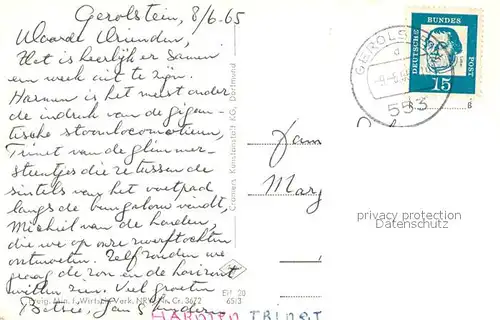 Gerolstein, 8/6.65
Waarde Vrienden,
Het is heerlijk er samen
een week uit te zijn.
Harmen is het meest onder
de indruk van de gigan-
tische stoomlocomotieven,
Trinet van de glimmer-
steentjes die ze tussen de
sintels van het voetpad
langs de bungalow vindt,
Michiel van de honden,
die we op onze zwerftochten
ontmoeten. Zelf zouden we
graag de zon en de horizont
willen zien. Veel groeten
Betsie, Jan
HARMEN TRINET
Cramers Kunstanstalt KG, Dortmund
Genehmig. Min. f. Wirtsch. Verk. NRW Nr. Cr. 3672
Eif 20
65/3
GEROLS
553
DEUTSCHE
BUNDES
POST
15
Jam
Marg
privacy protection
Datenschutz